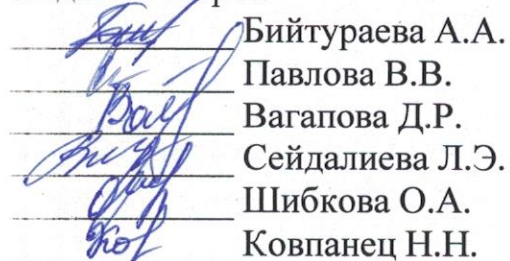 Бийтураева А.А.
Павлова В.В.
Вагапова Д.Р.
Сейдалиева Л.Э.
Шибкова О.А.
Ковпанец Н.Н.